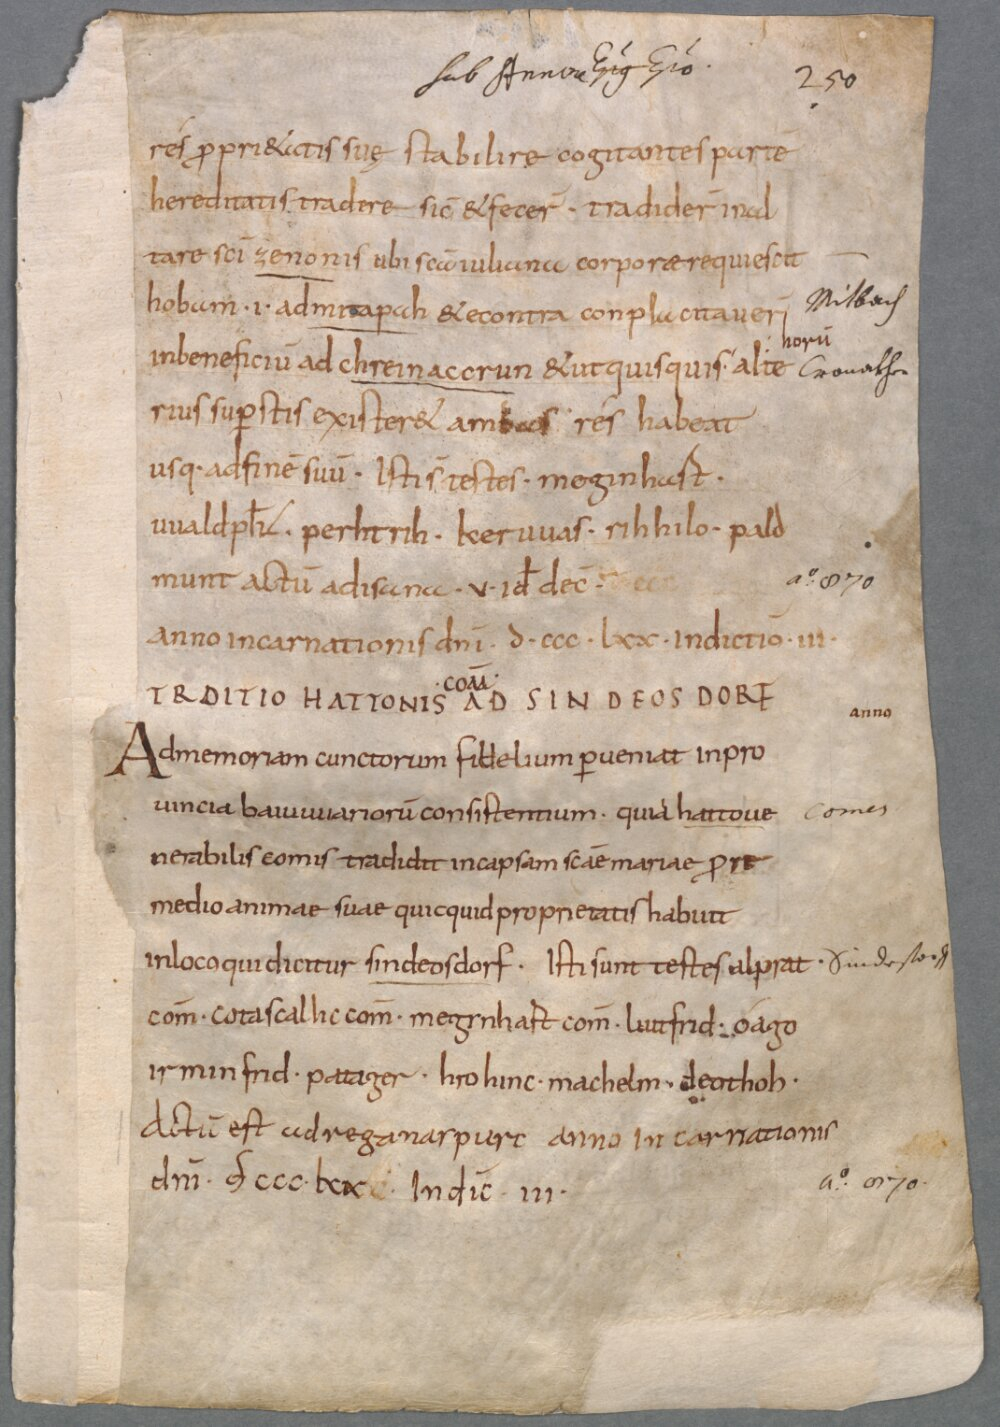 sub Annone
250
res ꝓpri&atis suę stabilire cogitantes partē
hereditatis tradere sic̄ & fecer̄ · tradider̄ in al
tare sc̄i zenonis ubi sc̄a iuliana corpore requiescit
hobam · i · ad mitapah & econtra conplacitaver
Milbach
horū
in beneficiū ad chreinacorun & ut quisquis alte
rius sup̄stis exister& ambas res habeat
usq · ad finē suū · Isti s̄ testes · meginhast ·
uualdp̄ht · perhtrih · keruuas · rihhilo · pald
munt actū ad isana · v · id̄ dec̄ ·
aº. 870
anno incarnationis dn̄i · d · ccc · lxx · indictiō · iii ·
· com̄ ·
TRDITIO HATTONIS AD SINDEOSDORF
anno
Ad memoriam cunctorum fidelium p̄veniat in pro
vincia baiuuuariorū consistentium · quia hatto ve
comes
nerabilis comis tradidit in capsam scāe mariae ꝓ re
medio animae suae quicquid proprietatis habuit
in loco qui dicitur sindeosdorf · Isti sunt testes alprat ·
Sindestorff
com̄ · cotascalhc com̄ · meginhast com̄ · liutfrid · oago
irminfrid · patager · hrohinc · machelm · deothoh ·
Actū est ad reganaspurc anno incarnationis
dn̄i · d ccc · lxx · Indic̄ · iii ·
aº. 870 ·